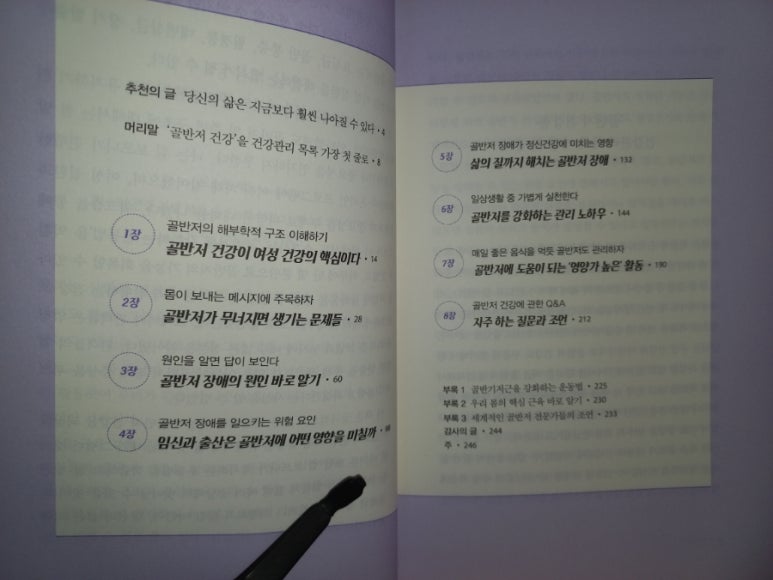 추천의 글 당신의 삶은 지금보다 훨씬 나아질 수 있다 • 4
머리말 '골반저 건강'을 건강관리 목록 가장 첫 줄로 • 8
1장
골반저의 해부학적 구조 이해하기
골반저 건강이 여성 건강의 핵심이다 • 14
2장
몸이 보내는 메시지에 주목하자
골반저가 무너지면 생기는 문제들 • 28
3장
원인을 알면 답이 보인다
골반저 장애의 원인 바로 알기 • 60
4장
골반저 장애를 일으키는 위험 요인
임신과 출산은 골반저에 어떤 영향을 미칠까 •
5장
골반저 장애가 정신건강에 미치는 영향
삶의 질까지 해치는 골반저 장애 • 132
6장
일상생활 중 가볍게 실천한다
골반저를 강화하는 관리 노하우 • 144
7장
매일 좋은 음식을 먹듯 골반저도 관리하자
골반저에 도움이 되는 '영양가 높은' 활동 • 190
8장
골반저 건강에 관한 Q&A
자주 하는 질문과 조언 • 212
부록 1 골반기저근을 강화하는 운동법 • 225
부록 2 우리 몸의 핵심 근육 바로 알기 • 230
부록 3 세계적인 골반저 전문가들의 조언 • 233
감사의 글 • 244
주 • 246